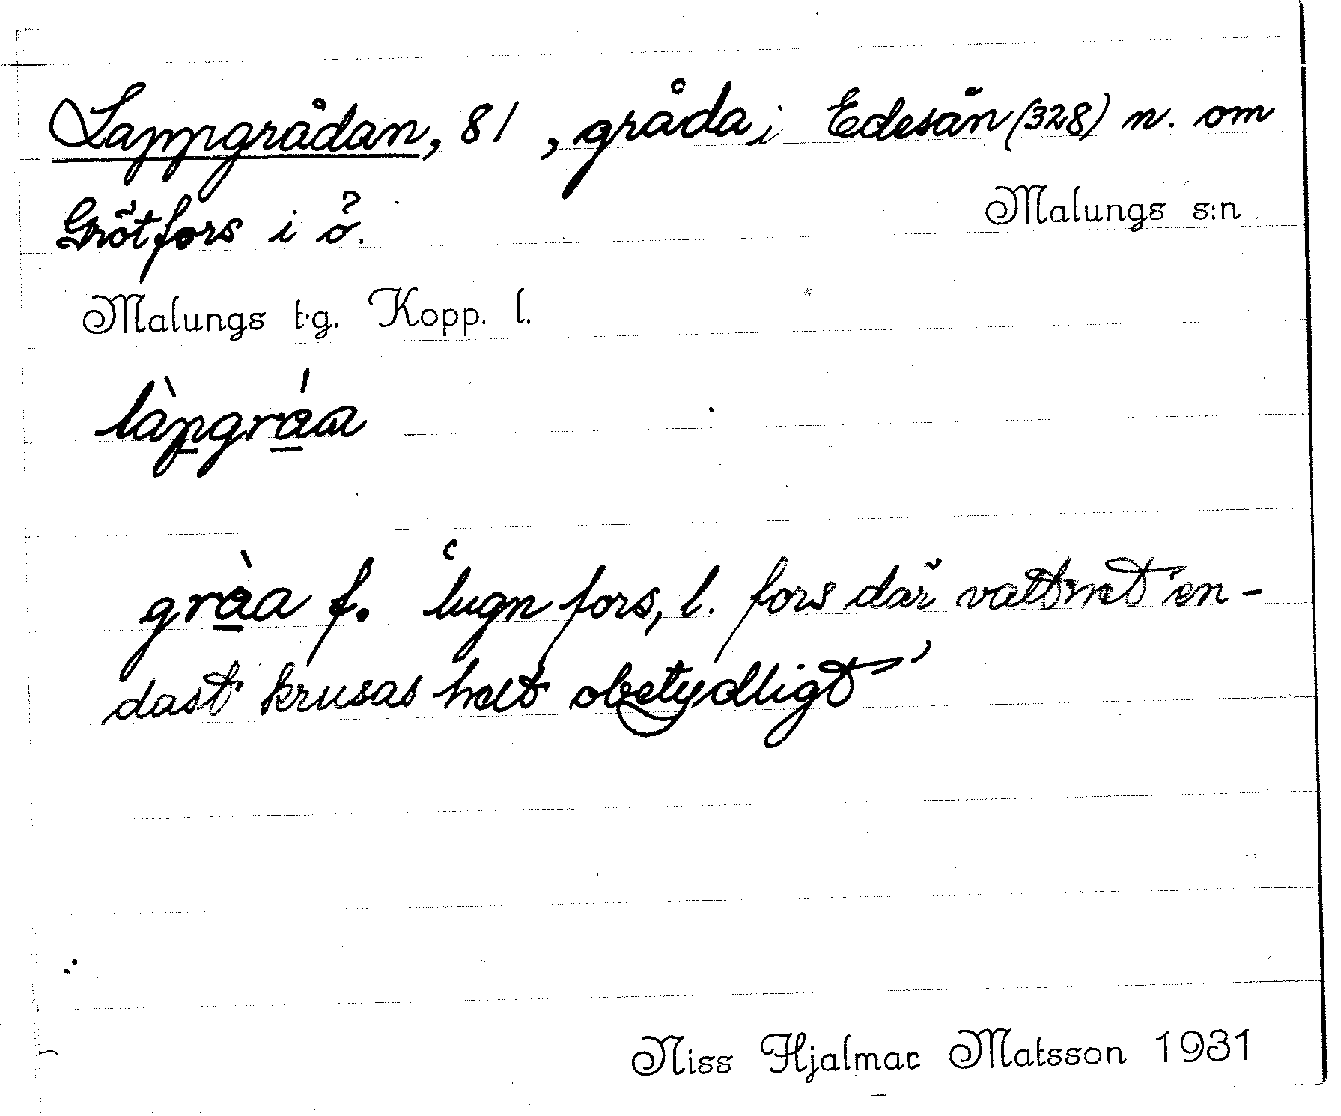 Lappgrådan, 81, gråda i Edesån (328) n. om
Grötfors i ö.
Malungs s:n
Malungs t.g. Kopp. l.
làpgráa
gràa f. 'lugn fors, l. fors där vattnet en-
dast krusas helt obetydligt'
Niss Hjalmar Matsson 1931